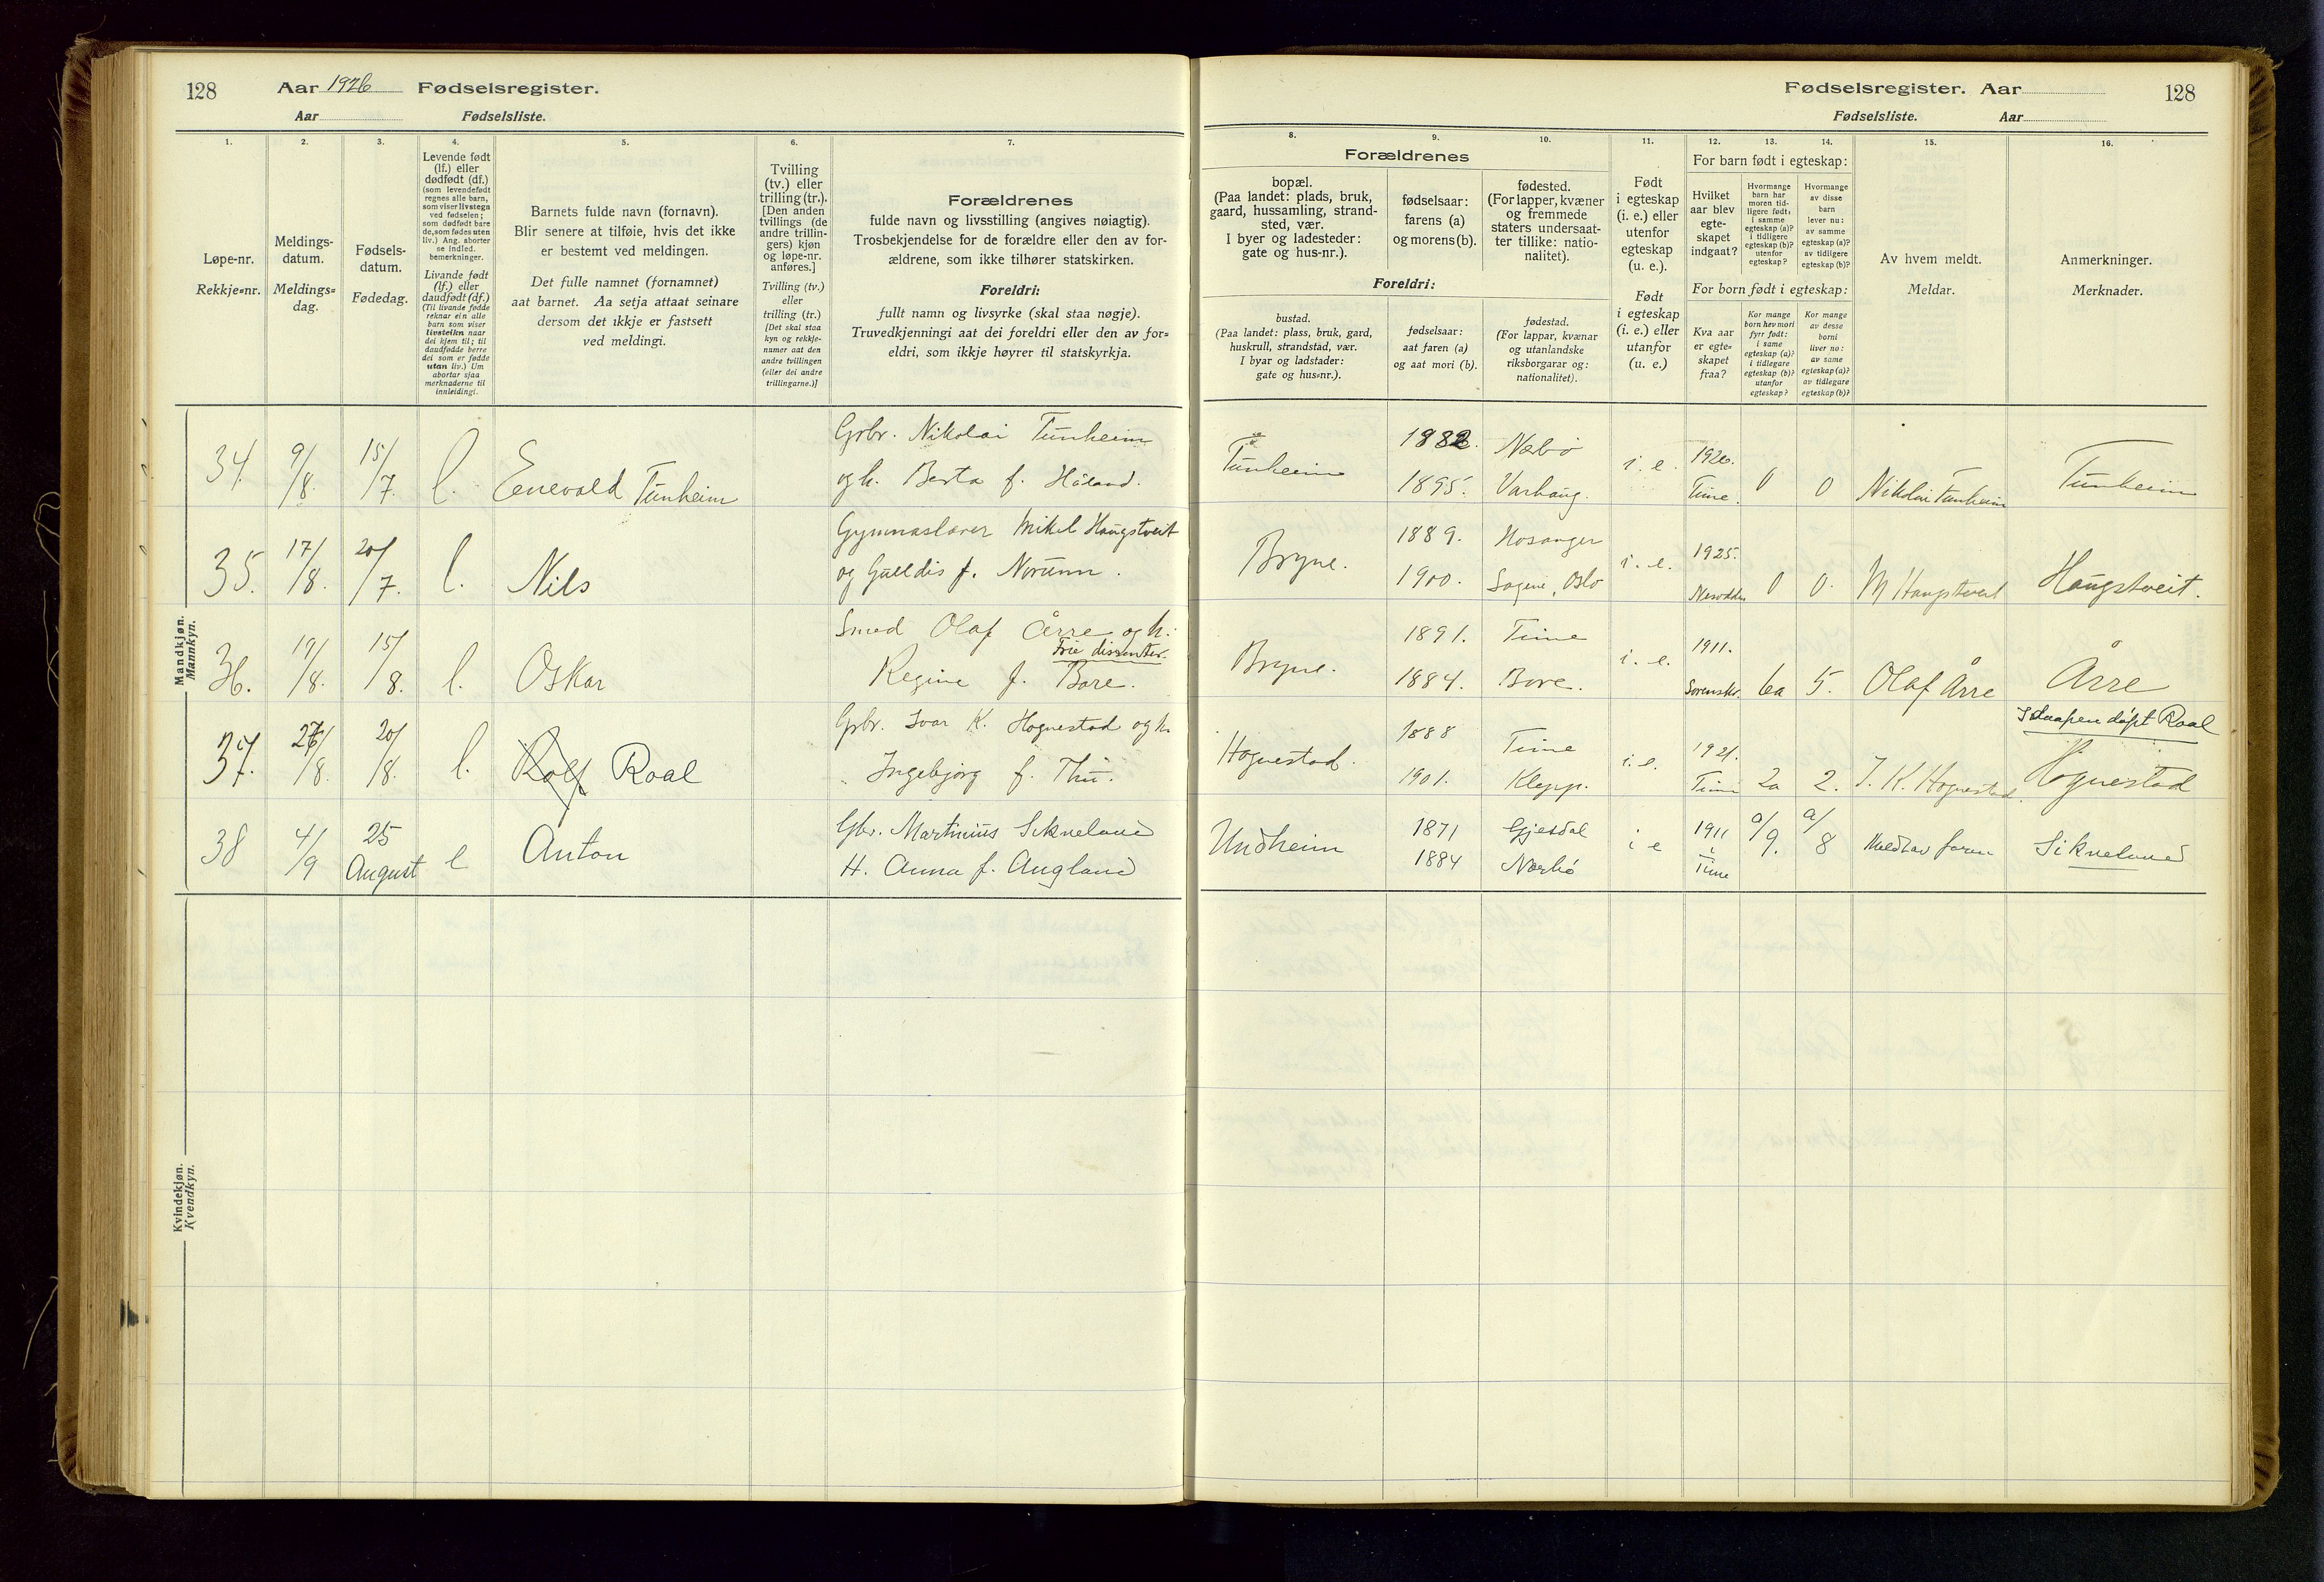 128 Aar 1926 Fødselsregister.
Aar Fødselsliste.
1. 2. 3. 4. 5. 6. 7.
Løpe-nr.
Rekkje=nr.
Meldings-
datum.
Meldings=
dag.
Fødsels-
datum.
Fødedag.
Levende født
(lf.) eller
dødfødt (df.)
(som levendefødt
regnes alle barn,
som viser livstegn
ved fødselen;
som dødfødt bare
de, som fødes uten
liv.) Ang. aborter
se indled.
bemerkninger.
Livande født
(lf.) eller
daudfødt (df.)
(Til livande fødde
reknar ein alle
barn som viser
livsteikn naar
dei kjem til; til
daudfødde berre
dei som er fødde
utan liv.) Um
abortar sjaa
merknaderne til
innleidingi.
Barnets fulde navn (fornavn).
Blir senere at tilføie, hvis det ikke
er bestemt ved meldingen.
Det fulle namnet (fornamnet)
aat barnet. Aa setja attaat seinare
dersom det ikkje er fastsett
ved meldingi.
Tvilling
(tv.) eller
trilling (tr.).
[Den anden
tvillings (de
andre trillin-
gers) kjøn
og løpe-nr.
anføres.]
Tvilling (tv.)
eller
trilling (tr.)
[Det skal staa
kyn og rekkje-
numer aat den
andre tvillingen
(eller dei andre
trillingarne.)]
Forældrenes
fulde navn og livsstilling (angives nøiagtig).
Trosbekjendelse for de forældre eller den av for-
ældrene, som ikke tilhører statskirken.
Foreldri:
fullt namn og livsyrke (skal staa nøgje).
Truvedkjenningi aat dei foreldri eller den av for=
eldri, som ikkje høyrer til statskyrkja.
Mandkjøn.
Mannkyn.
34. 9/8. 15/7. l. Enevald Tunheim
Grbr. Nikolai Tunheim
og h. Berta f. Håland.
35. 17/8. 20/7. l. Nils
Gymnaslærer Mikel Haugstveit
og Gulldis f. Norunn.
36. 19/8. 15/8. l. Oskar
Smed Olaf Årre og h.
Frie dissenter.
Regine f. Bore.
37. 26/8. 20/8. l. Rolf Roal
Grbr. Ivar K. Hognestad og h.
Ingebjørg f. Thu.
38 4/9 25 August l Anton
Gbr. Martinius Sikveland
H. Anna f. Augland
Kvindekjøn.
Kvendkyn.
Fødselsregister. Aar 128
Fødselsliste. Aar
8. 9. 10. 11. 12. 13. 14. 15. 16.
Forældrenes
bopæl.
(Paa landet: plads, bruk,
gaard, hussamling, strand-
sted, vær.
I byer og ladesteder:
gate og hus-nr.).
fødselsaar:
farens (a)
og morens (b).
fødested.
(For lapper, kvæner
og fremmede
staters undersaat-
ter tillike: natio-
nalitet).
Foreldri:
bustad.
(Paa landet: plass, bruk, gard,
huskrull, strandstad, vær.
I byar og ladstader:
gate og hus=nr.).
fødselsaar:
aat faren (a)
og aat mori (b).
fødestad.
(For lappar, kvænar
og utanlandske
riksborgarar og:
nationalitet).
Født
i egteskap
(i. e.) eller
utenfor
egteskap
(u. e.).
Født
i egteskap
(i. e.) eller
utanfor
(u. e.)
For barn født i egteskap:
Hvilket
aar blev
egte-
skapet
indgaat?
Hvormange
barn har
moren tid-
ligere født:
i samme
egteskap (a)?
i tidligere
egteskap (b)?
utenfor
egteskap?
Hvormange
av disse
barn
lever nu:
av samme
egteskap (a)?
av tidligere
egteskap (b)?
For born født i egteskap:
Kva aar
er egte=
skapet
fraa?
Kor mange
born hev mori
fyrr født:
i same
egteskap (a)?
i tidlegare
egteskap (b)?
utanfor
egteskap?
Kor mange
av desse
borni
liver no:
av same
egteskap (a)?
av tidlegare
egteskap (b)?
Av hvem meldt.
Meldar.
Anmerkninger.
Merknader.
Tunheim 1882. Nærbø i. e. 1926. 0 0 Nikolai Tunheim Tunheim
1895. Varhaug. Time.
Bryne. 1889. Hosanger i. e. 1925. 0 0. M Haugstveit Haugstveit.
1900. Sagene, Oslo Nesodden
Bryne. 1891. Time i. e. 1911. 6a 5. Olaf Årre Årre
1884. Bore. Sorenskr.
I daapen døpt Roal
Hognestad. 1888 Time i e. 1921. 2a 2. I. K. Hognestad. Hognestad
1901. Klepp. Time
Undheim 1871 Gjesdal i e 1911 a/9. a/8 Meldt av faren Sikveland
1884 Nærbø i Time